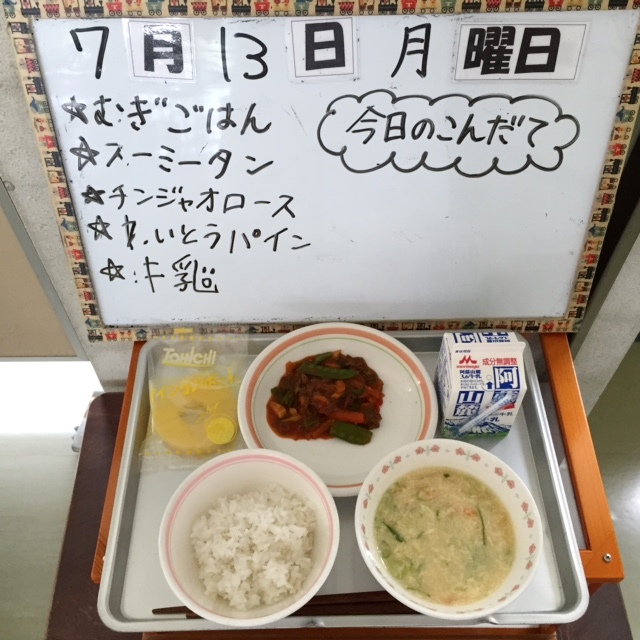 7月13日 月曜日
今日のこんだて
☆むぎごはん
☆スーミータン
☆チンジャオロース
☆れいとうパイン
☆牛乳
TOMICHI
成分無調整